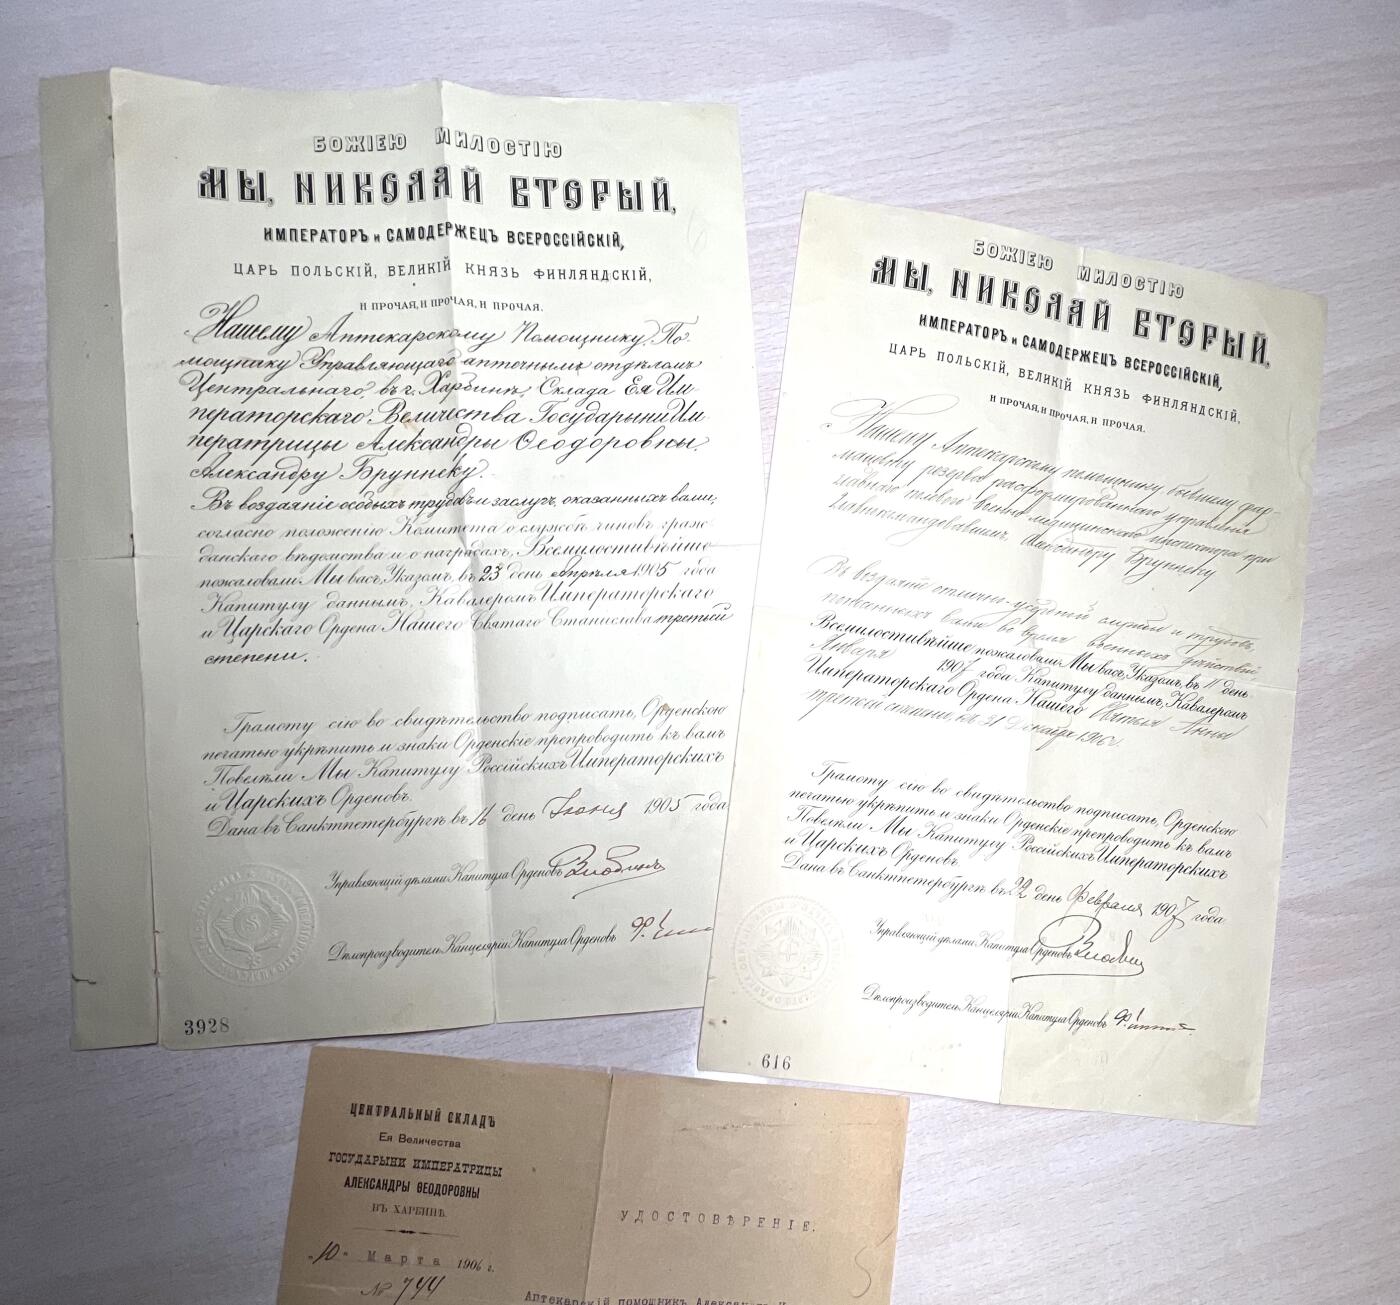 БОЖІЕЮ МИЛОСТІЮ
МЫ, НИКОЛАЙ ВТОРЫЙ,
ИМПЕРАТОРЪ и САМОДЕРЖЕЦЪ ВСЕРОССІЙСКІЙ,
ЦАРЬ ПОЛЬСКІЙ, ВЕЛИКІЙ КНЯЗЬ ФИНЛЯНДСКІЙ,
И ПРОЧАЯ, И ПРОЧАЯ, И ПРОЧАЯ.
Нашему Аптекарскому Помощнику, По-
мощнику Управляющаго аптечнымъ отдѣломъ
Центральнаго, въ г. Харбинѣ, Склада Ея Им
ператорскаго Величества Государыни Им
ператрицы Александры Ѳеодоровны.
Александру Бруннеку.
Въ воздаяніе особыхъ трудовъ и заслугъ, оказанныхъ вами,
согласно положенію Комитета о службѣ чиновъ граж-
данскаго вѣдомства и о наградахъ, Всемилостивѣйше
пожаловали Мы васъ, Указомъ, въ 23 день апрѣля 1905 года
Капитулу даннымъ, Кавалеромъ Императорскаго
и Царскаго Ордена Нашего Святаго Станислава третьей
степени.
Грамоту сію во свидѣтельство подписать, Орденскою
печатью укрѣпить и знаки Орденскіе препроводить къ вамъ
Повелѣли Мы Капитулу Россійскихъ Императорскихъ
и Царскихъ Орденовъ.
Дана въ Санктпетербургѣ въ 16 день Іюня 1905 года
Управляющій дѣлами Капитула Орденовъ
Дѣлопроизводитель Канцеляріи Капитула Орденовъ
3928
БОЖІЕЮ МИЛОСТІЮ
МЫ, НИКОЛАЙ ВТОРЫЙ,
ИМПЕРАТОРЪ и САМОДЕРЖЕЦЪ ВСЕРОССІЙСКІЙ,
ЦАРЬ ПОЛЬСКІЙ, ВЕЛИКІЙ КНЯЗЬ ФИНЛЯНДСКІЙ,
И ПРОЧАЯ, И ПРОЧАЯ, И ПРОЧАЯ.
Нашему Аптекарскому помощнику, бывшему фар-
мацевту резерва расформированнаго управленія
главнаго полевого военно-медицинскаго инспектора при
Главнокомандовавшемъ, Александру Бруннеку
Въ воздаяніе отлично-усердной службы и трудовъ,
понесенныхъ вами во время военныхъ дѣйствій,
Всемилостивѣйше пожаловали Мы васъ, Указомъ, въ 11 день
Января 1907 года Капитулу даннымъ, Кавалеромъ
Императорскаго Ордена Нашего Святыя Анны
третьей степени, къ 31 Декабря 1906 г.
Грамоту сію во свидѣтельство подписать, Орденскою
печатью укрѣпить и знаки Орденскіе препроводить къ вамъ
Повелѣли Мы Капитулу Россійскихъ Императорскихъ
и Царскихъ Орденовъ.
Дана въ Санктпетербургѣ въ 22 день Февраля 1907 года
Управляющій дѣлами Капитула Орденовъ
Дѣлопроизводитель Канцеляріи Капитула Орденовъ
616
ЦЕНТРАЛЬНЫЙ СКЛАДЪ
Ея Величества
ГОСУДАРЫНИ ИМПЕРАТРИЦЫ
АЛЕКСАНДРЫ ѲЕОДОРОВНЫ
ВЪ ХАРБИНѢ.
„10" Марта 1906 г.
№ 744
УДОСТОВѢРЕНІЕ.
Аптекарскій помощникъ